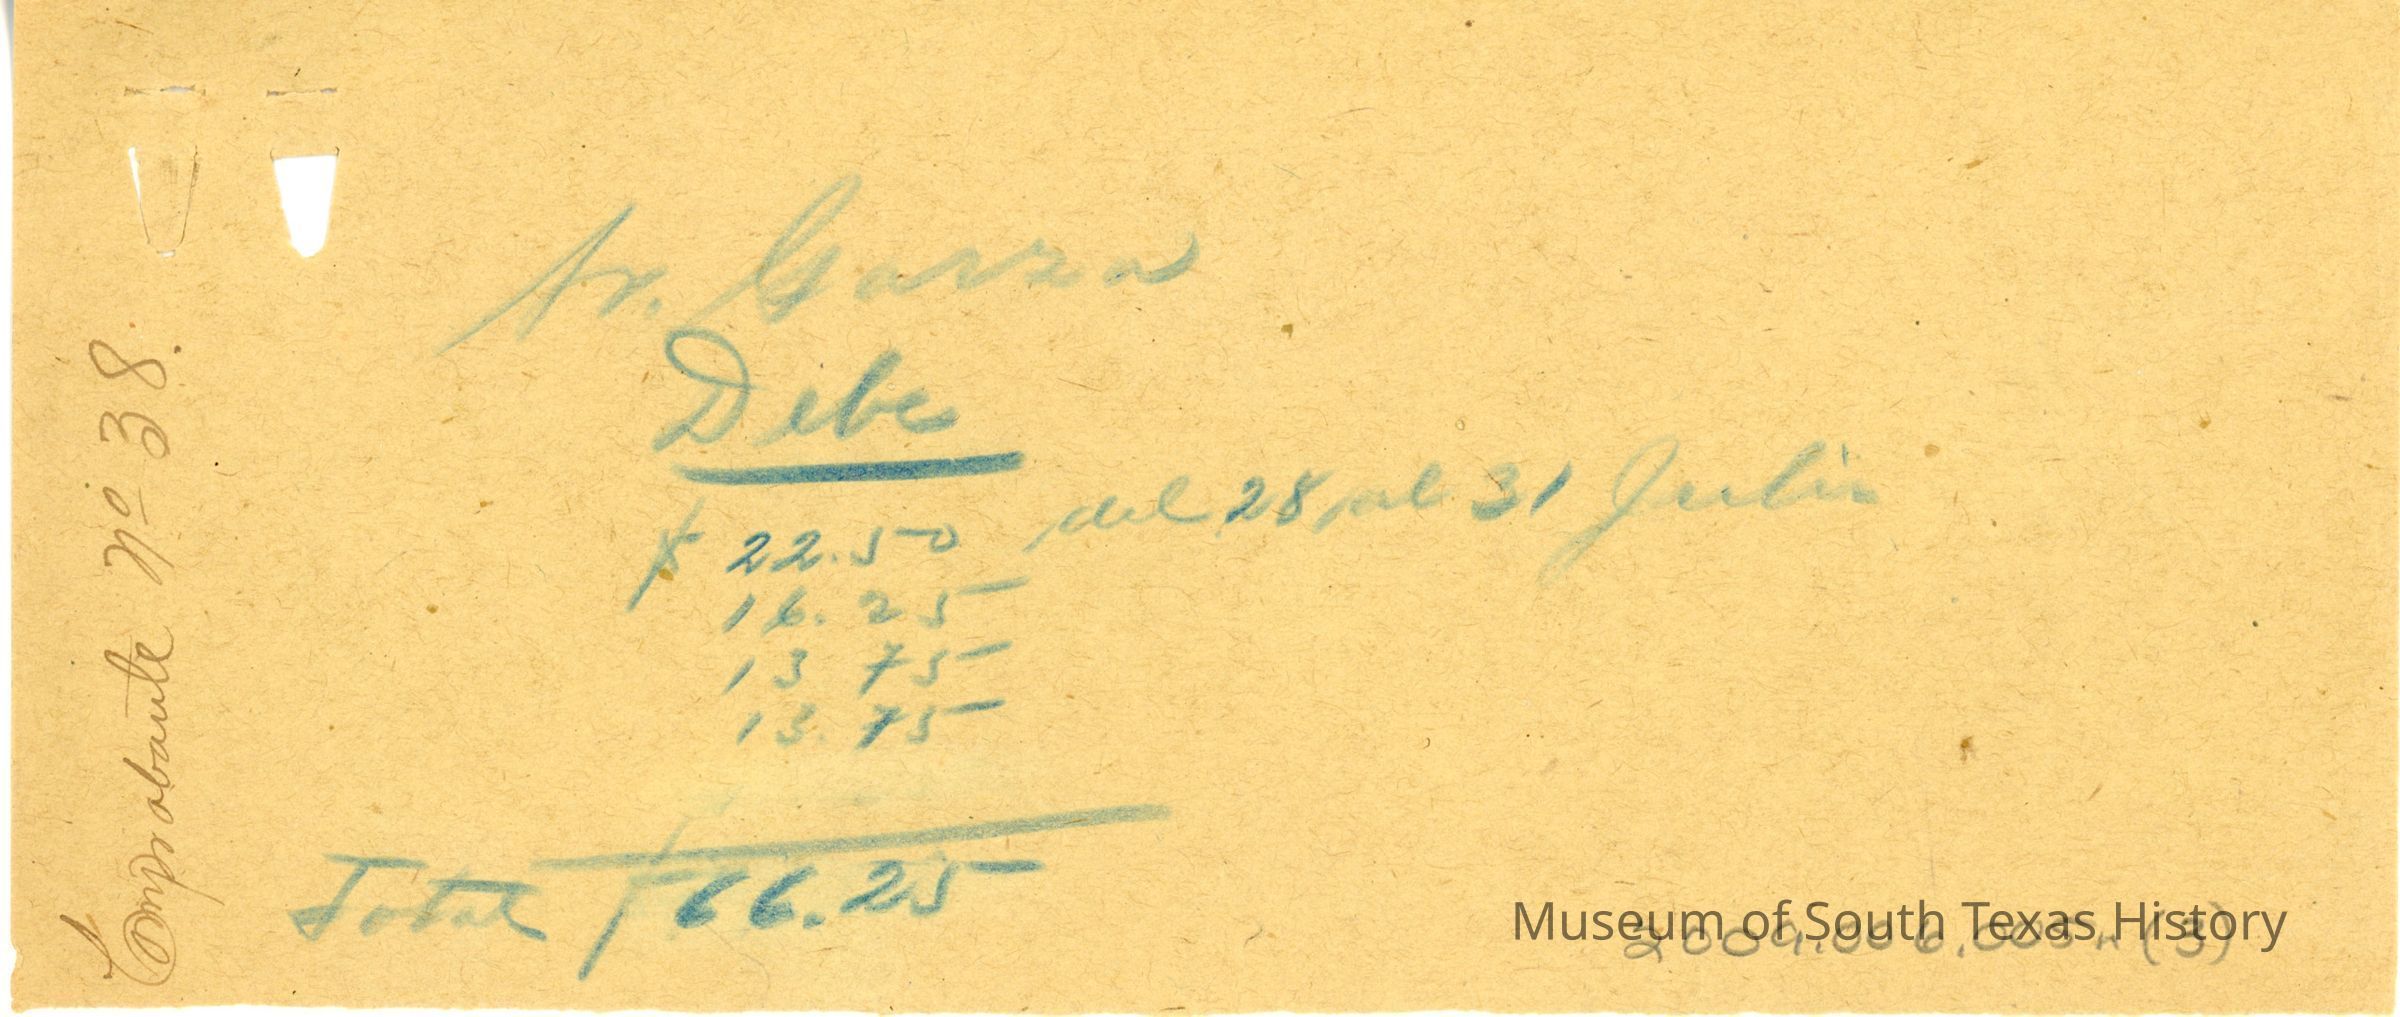 Sr. Garza
Debe
$ 22.50 del 28 al 31 Julio
16.25
13.75
13.75
Total $66.25
Comprobante No 38.
Museum of South Texas History